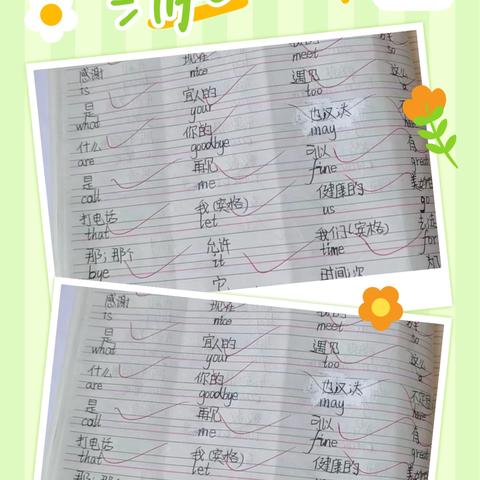 感谢 现在
is nice meet so
是 宜人的 遇见 这么
what your too
什么 你的
are goodbye may
是 再见 可以 有
call me fine great
打电话 我(宾格) 健康的
that let us go
那;那个 允许 我们(宾格)
bye it time for
它 时间;次 为
感谢 现在
is nice meet
是 宜人的 遇见 这么
what your too
什么 你的
are goodbye may
是 再见 可以 有
call me fine great
打电话 我(宾格) 健康的
that let us